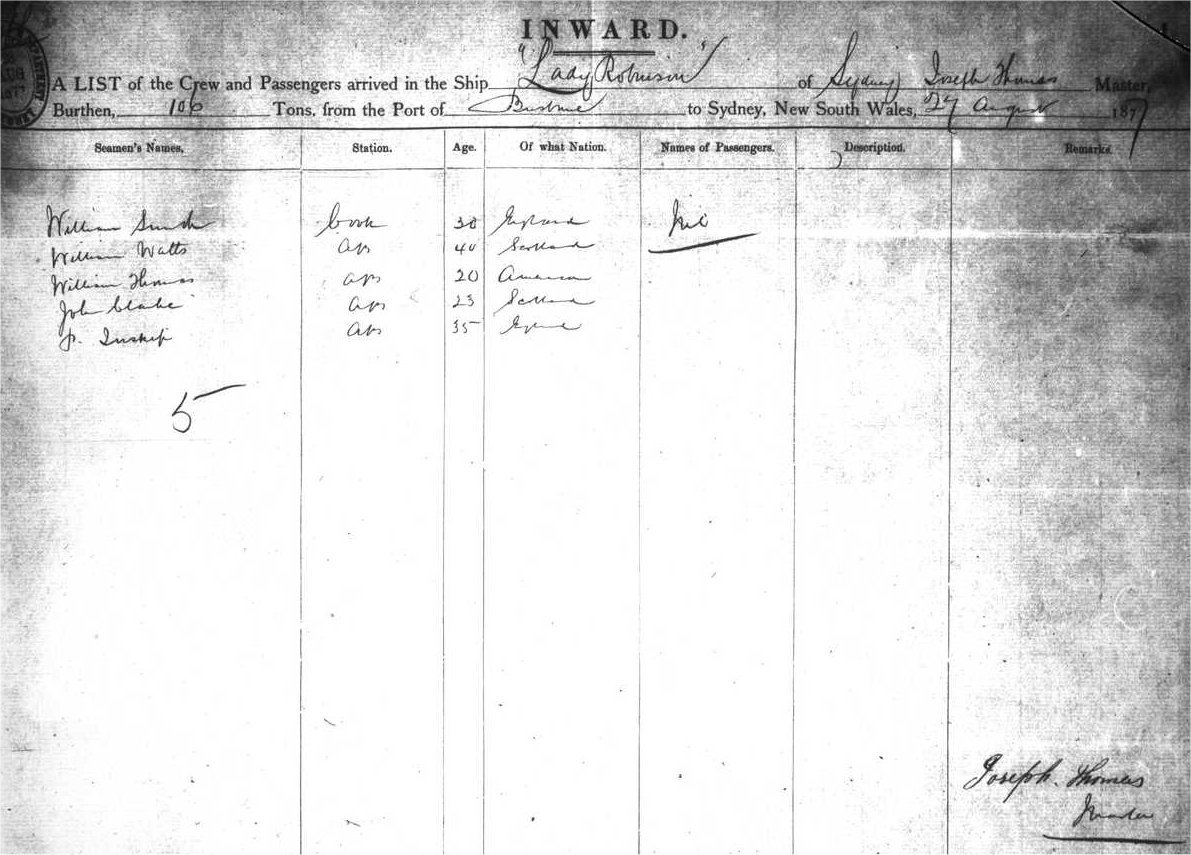 INWARD.
A LIST of the Crew and Passengers arrived in the Ship "Lady Robinson" of Sydney Joseph Thomas Master,
Burthen, 106 Tons, from the Port of Brisbane to Sydney, New South Wales, 27 August 1877
Seamen's Names. Station. Age. Of what Nation. Names of Passengers. Description. Remarks.
William Smith Cook 38 England Nil
William Watts ABs 40 Scotland
William Thomas ABs 20 American
John Blake ABs 23 Scotland
J. Inskip ABs 35 England
5
Joseph. Thomas
Master